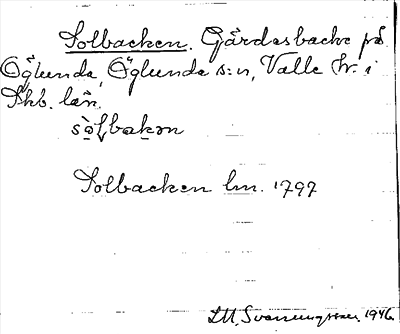 Solbacken. Gärdesbacke på
Öglunda, Öglunda s:n, Valle hr. i
Skb. län.
sòlbakən
Solbacken lm. 1797
D.M. Svenungsson 1946